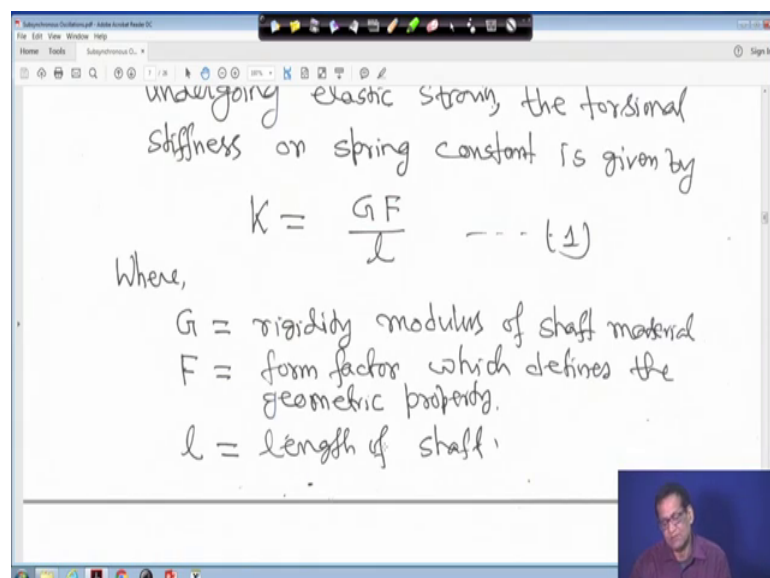 Subsynchronous Oscillations.pdf - Adobe Acrobat Reader DC
File Edit View Window Help
Home Tools Subsynchronous O... × Sign In
7 / 26
undergoing elastic strain, the torsional
stiffness or spring constant is given by
K = GF / l --- (1)
Where,
G = rigidity modulus of shaft material
F = form factor which defines the
geometric property.
l = length of shaft.